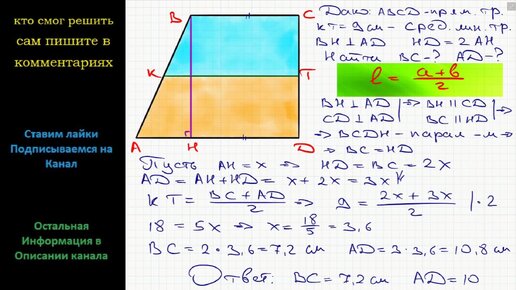 кто смог решить
сам пишите в
комментариях
Ставим лайки
Подписываемся на
Канал
Остальная
Информация в
Описании канала
B
C
K
T
A
H
D
Дано: ABCD-прям. тр.
KT = 9 см - сред. лин. тр.
BH ⊥ AD HD = 2AH
Найти BC - ? AD - ?
l = (a+b)/2
BH ⊥ AD | ⇒ BH || CD | ⇒
CD ⊥ AD | BC || HD |
⇒ BCDH - парал-м ⇒
⇒ BC = HD
Пусть AH = x ⇒ HD = BC = 2x
AD = AH + HD = x + 2x = 3x
KT = (BC + AD)/2 ⇒ 9 = (2x + 3x)/2 | · 2
18 = 5x ⇒ x = 18/5 = 3,6
BC = 2 · 3,6 = 7,2 см AD = 3 · 3,6 = 10,8 см
Ответ: BC = 7,2 см AD = 10